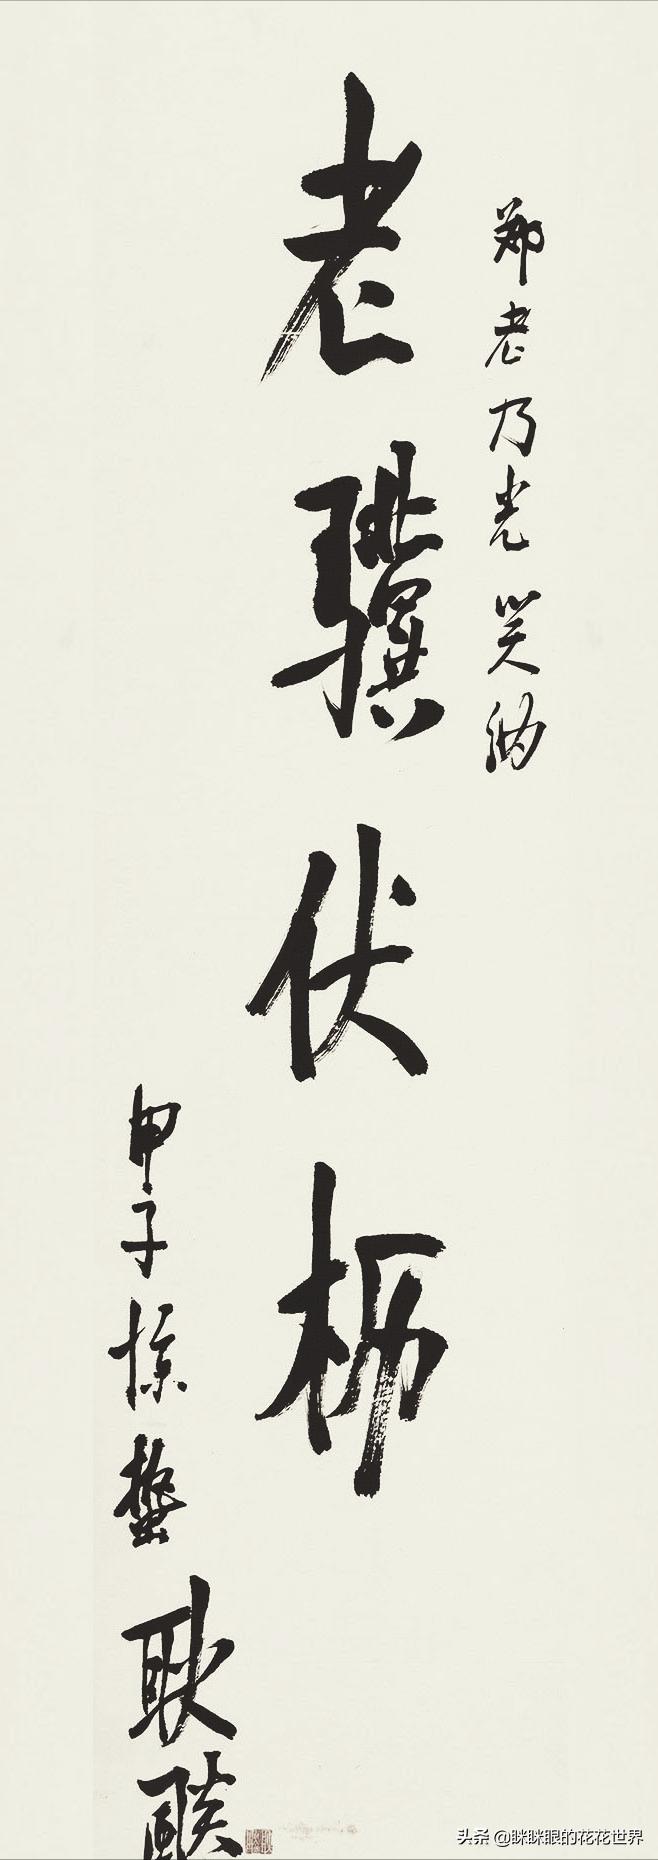 郑老乃光笑纳
老骥伏枥
甲子惊蛰
耿飚
头条 @眯眯眼的花花世界